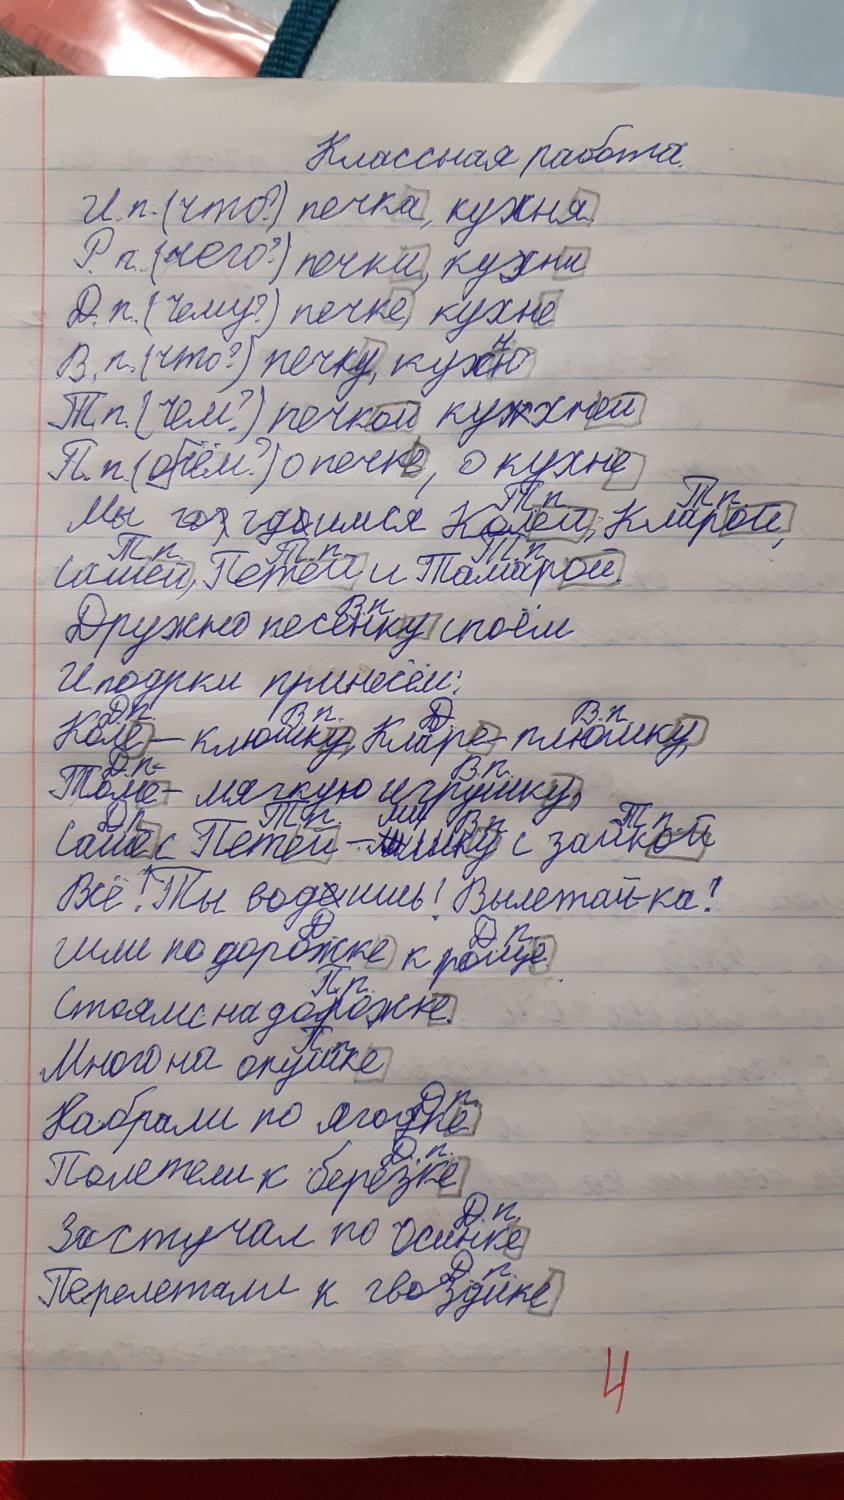 Классная работа.
И.п. (что?) печка, кухня
Р.п. (чего?) печки, кухни
Д.п. (чему?) печке, кухне
В.п. (что?) печку, кухню
Т.п. (чем?) печкой кухней
П.п. (о чём?) о печке, о кухне
Т.п. Т.п.
Мы гордимся Колей, Кларой,
Т.п. Т.п. Т.п.
Сашей, Петей и Тамарой.
В.п.
Дружно песенку споём
И подрки принесём:
Д.п. В.п. Д. В.п.
Коле – клюшку, Кларе – плюшку,
Д.п. В.п.
Томе – мягкую игрушку,
Д.п. Т.п. В.п. Т.п.
Саше с Петей – мишку с зайкой
Всё! Ты водишь! Вылетай-ка!
Д Д.п.
Шли по дорожке к роще.
П.п.
Стоялс на дорожке.
П.
Много на опушке
Д.п.
Набрали по ягодке
Д.п.
Полетели к берёзке
Д.п.
Застучал по осинке
Д.п.
Перелетали к гвоздике
4